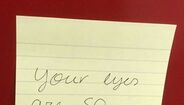 Your eyes
are so